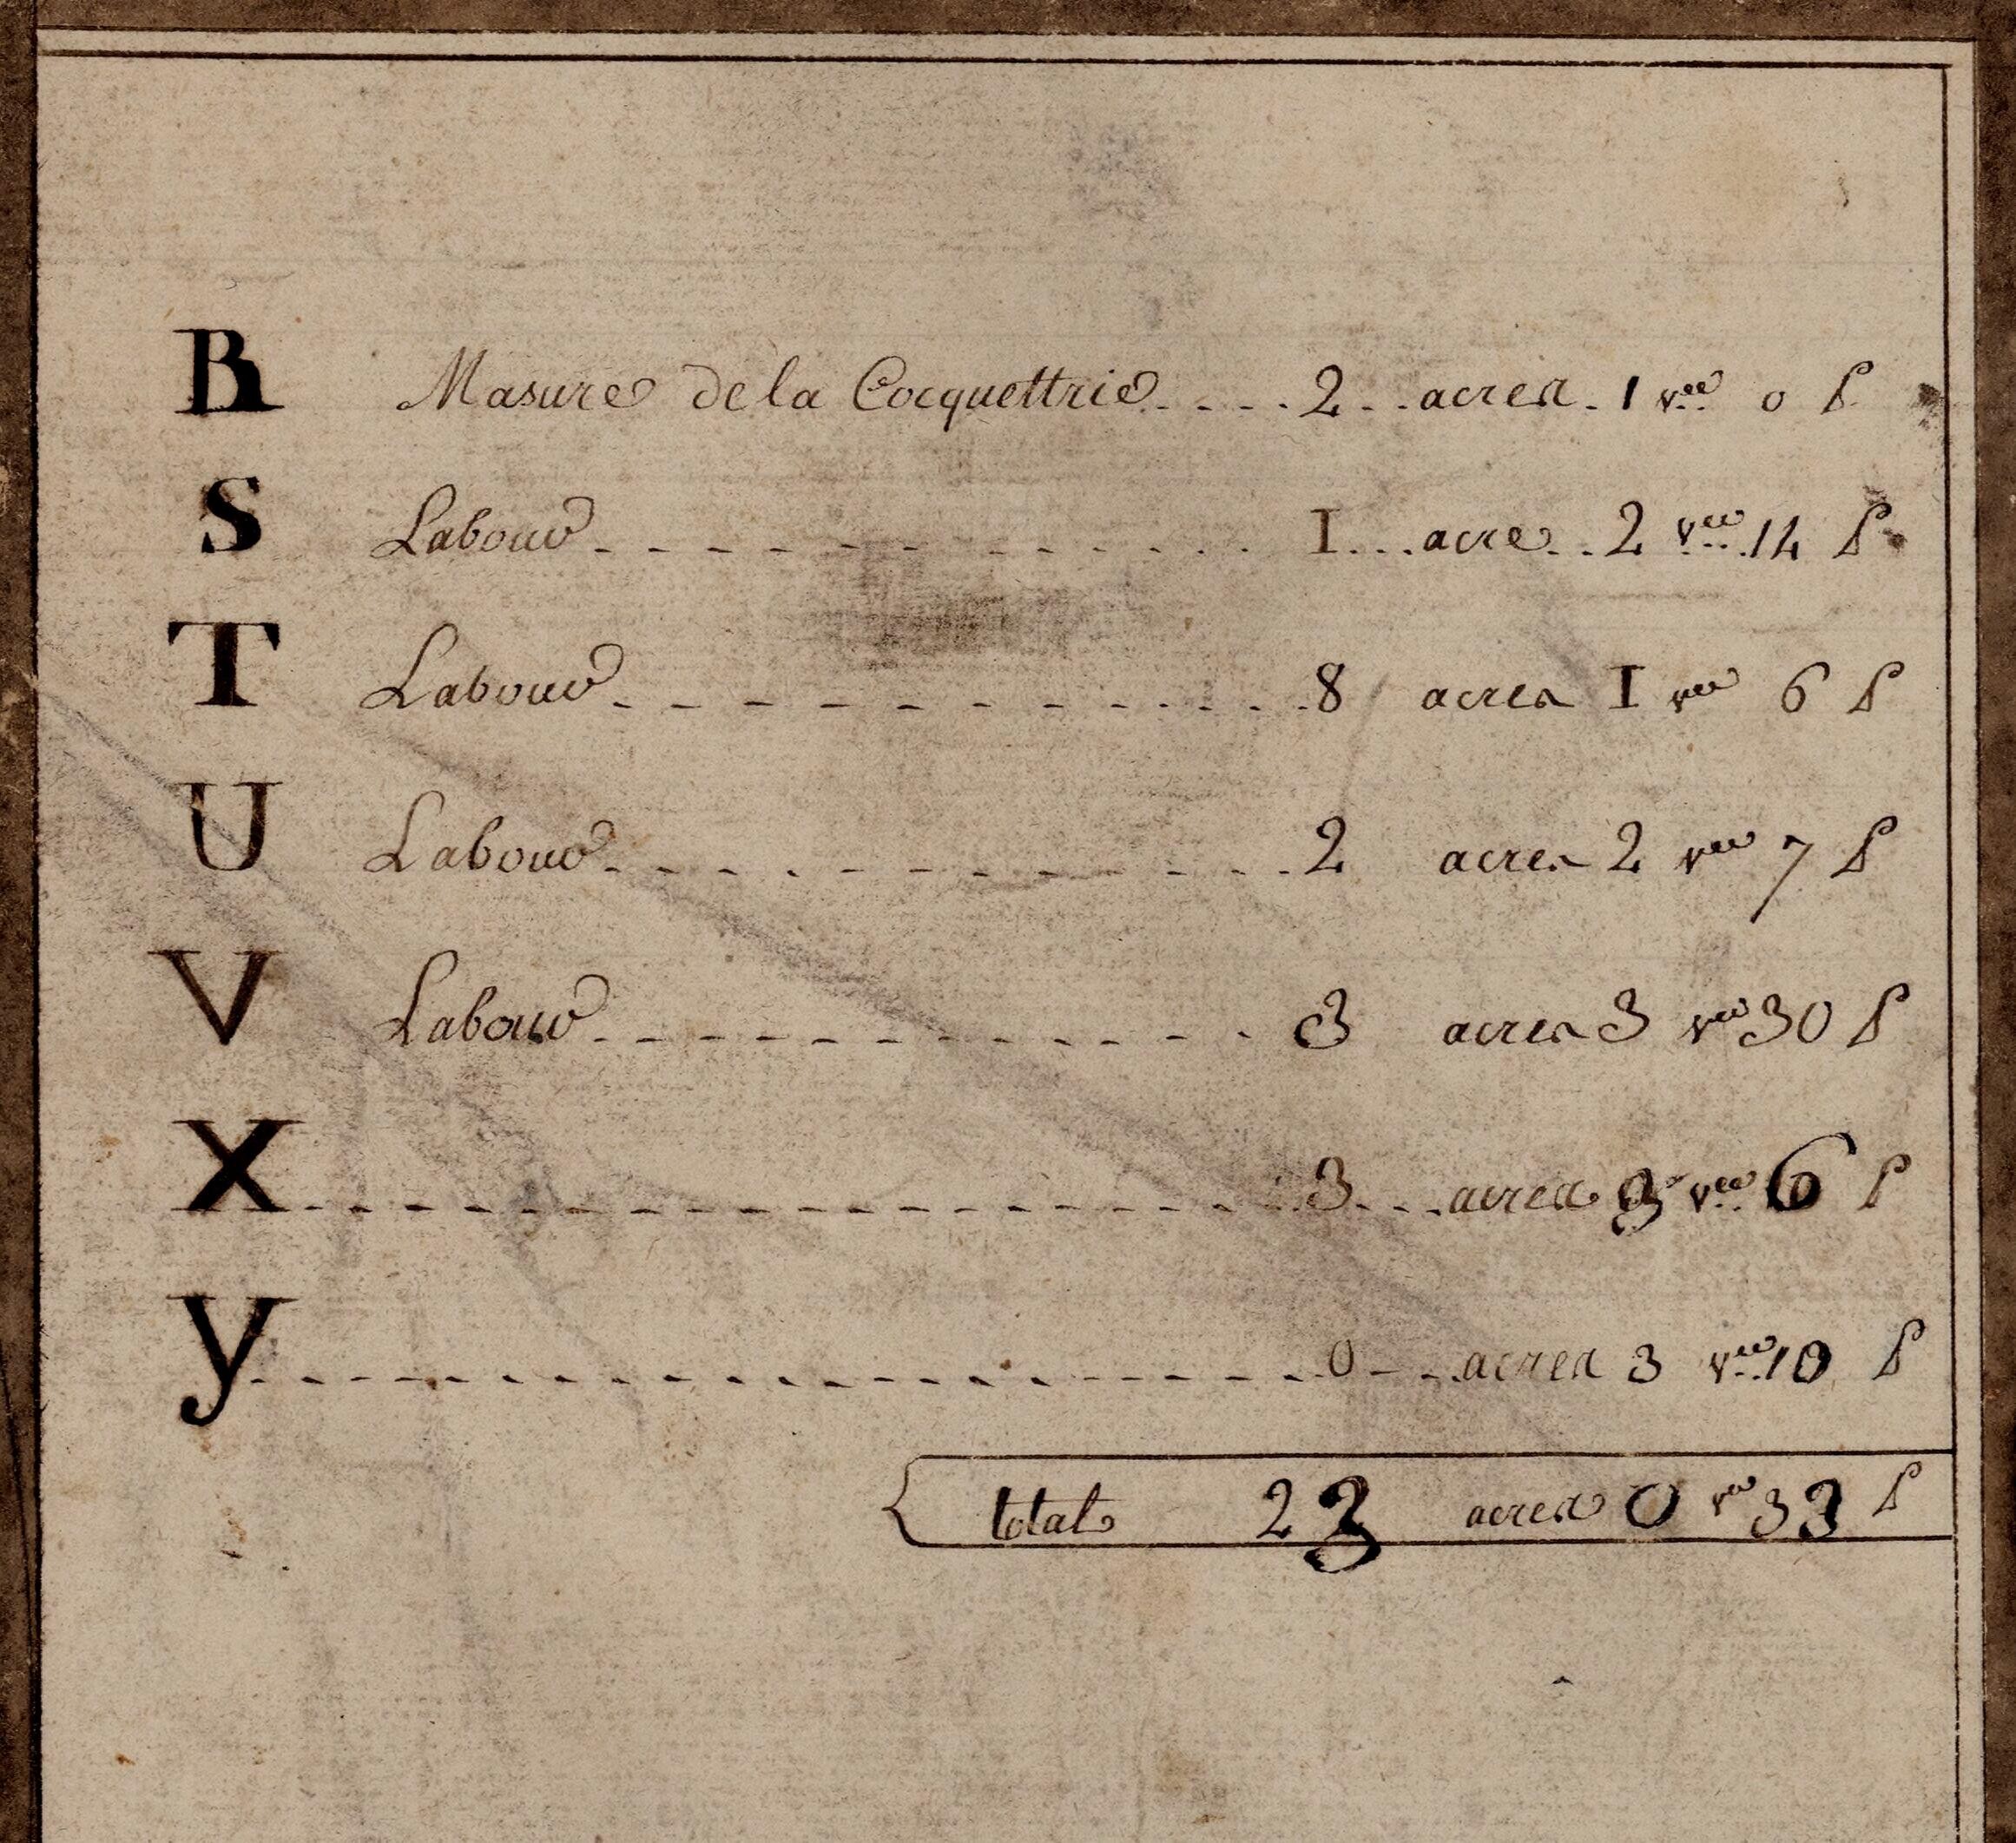 R Masure de la Cocquettrie.....2...acres.1 vées 0 P
S Labour..............1...acre..2 vées 14 P
T Labour..............8 acres 1 vée 6 P
U Labour..............2 acres 2 vées 7 P
V Labour..............3 acres 3 vées 30 P
X....................3....acres 3 vées 6 P
y....................0....acres 3 vées 10 P
total 23 acres 0 vée 33 P